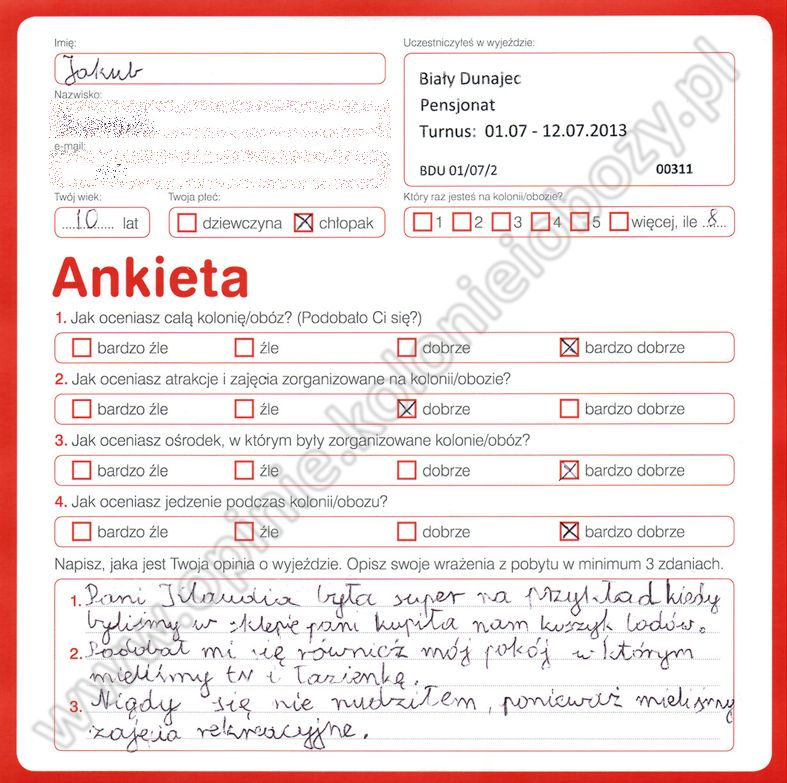 Imię:
Jakub
Uczestniczyłeś w wyjeździe:
Biały Dunajec
Pensjonat
Turnus: 01.07 - 12.07.2013
BDU 01/07/2 00311
Nazwisko:
e-mail:
Twój wiek:
10 lat
Twoja płeć:
dziewczyna chłopak
Który raz jesteś na kolonii/obozie?
1 2 3 4 5 więcej, ile 8
Ankieta
1. Jak oceniasz całą kolonię/obóz? (Podobało Ci się?)
bardzo źle źle dobrze bardzo dobrze
2. Jak oceniasz atrakcje i zajęcia zorganizowane na kolonii/obozie?
bardzo źle źle dobrze bardzo dobrze
3. Jak oceniasz ośrodek, w którym były zorganizowane kolonie/obóz?
bardzo źle źle dobrze bardzo dobrze
4. Jak oceniasz jedzenie podczas kolonii/obozu?
bardzo źle źle dobrze bardzo dobrze
Napisz, jaka jest Twoja opinia o wyjeździe. Opisz swoje wrażenia z pobytu w minimum 3 zdaniach.
1. Pani Klaudia była super na przykład kiedy
byliśmy w sklepie pani kupiła nam koszyk lodów.
2. Podobał mi się również mój pokój w którym
mieliśmy tv i łazienkę.
3. Nigdy się nie nudziłem, ponieważ mieliśmy
zajęcia rekreacyjne.
www.opinie.kolonieiobozy.pl